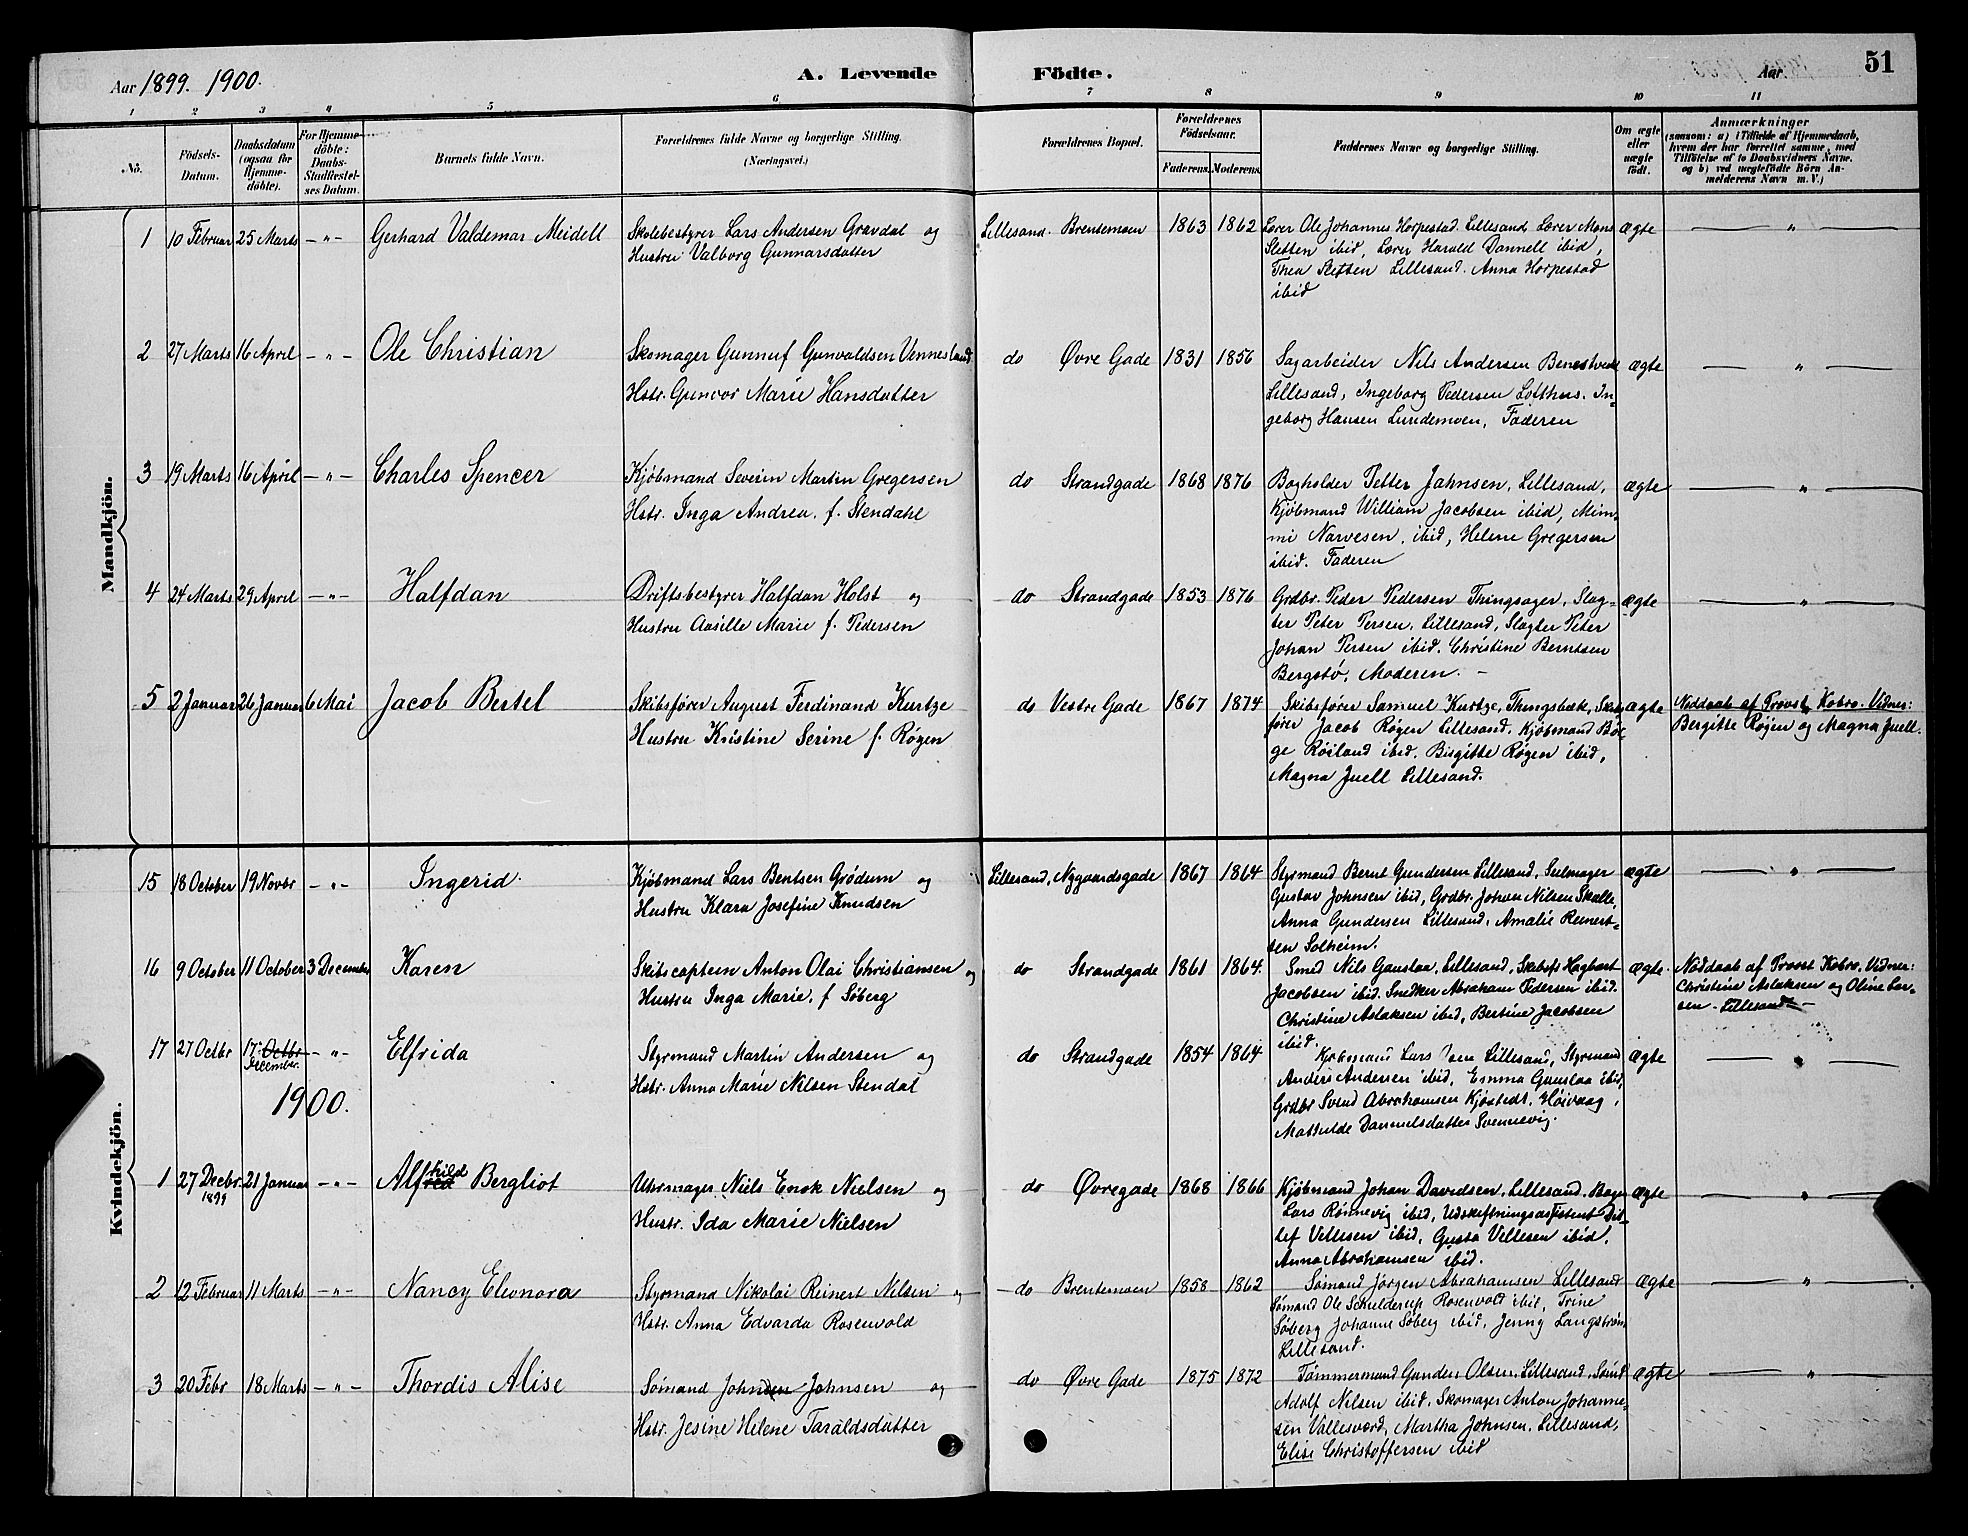 Aar 1899. 1900.
A. Levende Födte.
Aar
51
1 2 3 4 5 6 7 8 9 10 11
No.
Födsels-Datum.
Daabsdatum (ogsaa for Hjemme-döbte).
For Hjemme-döbte: Daabs-Stadfæstel-ses Datum.
Barnets fulde Navn.
Forældrenes fulde Navne og borgerlige Stilling. (Næringsvei.)
Forældrenes Bopæl.
Forældrenes Födselsaar.
Faderens. Moderens.
Faddernes Navne og borgerlige Stilling.
Om ægte eller uægte födt.
Anmærkninger
(saasom: a) i Tilfælde af Hjemmedaab, hvem der har forrettet samme, med Tilföielse af to Daabsvidners Navne. og b) ved uægtefödte Börn An-melderens Navn m. V.)
Mandkjön.
1 10 Februar 25 Marts -"- Gerhard Valdemar Meidell
Skolebestyrer Lars Andersen Gravdal og
Hustru Valborg Gunnarsdatter
Lillesand. Brentemoen 1863 1862
Lærer Ole Johannes Horpestad. Lillesand, Lærer Mons
Sletten ibid, Lærer Harald Dannell ibid,
Thea Sletten Lillesand. Anna Horpestad
ibid
ægte — " —
2 27 Marts 16 April -"- Ole Christian
Skomager Gunnuf Gunvaldsen Vennesland
Hstr. Guncor Marie Hansdatter
do Øvre Gade 1831 1856
Sagarbeider Nils Andersen
Lillesand, Ingeborg Pedersen Lotthus. In-
geborg Hansen Lundemoen, Faderen
ægte — " —
3 19 Marts 16 April -"- Charles Spencer
Kjøbmand Severin Martin Gregersen
Hstr. Inga Andrea. f. Stendahl
do Strandgade 1868 1876
Bogholder Petter Jahnsen, Lillesand,
Kjøbmand William Jacobsen ibid, Mim-
mi Narvesen, ibid, Helene Gregersen
ibid. Faderen
ægte — " —
4 24 Marts 29 April -"- Halfdan
Driftsbestyrer Halfdan Holst og
Hustru Aasille Marie f. Pedersen
do Strandgade 1853 1876
Grdbr. Peder Pedersen Thingsager, Slag-
ter Peter Persen, Lillesand, Slagter Peter
Johan Persen ibid. Christine Berntsen
Bergstø, Moderen. -
ægte — " —
5 2 Januar 26 Januar 6 Mai Jacob Bertel
Skibsfører August Ferdinand Kurtze
Hustru Kristine Serine f. Røgen
do Vestre Gade 1867 1874
Skibsfører Samuel Kurtze, Thingsbæk, Skibs-
fører Jacob Røgen Lillesand. Kjøbmand Bør-
ge Røiland ibid. Birgitte Røgen ibid,
Magna Juell Lillesand.
ægte
Nøddaab af Provst Kobro. Vidner:
Bergitte Røjen og Magna Juell.
Kvindekjön.
15 18 October 19 Novbr -"- Ingerid.
Kjøbmand Lars Bentsen Grødum og
Hustru Klara Josefine Knudsen
Lillesand, Nygaardsgade 1867 1864
Styrmand Bernt Gundersen Lillesand, Seilmager
Gustav Johnsen ibid, Grdbr. Johan Nilsen Skalle,
Anna Gundersen Lillesand, Amalie Reinert-
sen Solheim.
ægte — " —
16 9 October 11 October 3 December Karen
Skibscaptein Anton Olai Christiansen og
Hustru Inga Marie. f Søberg
do Strandgade 1861 1864.
Smed Nils Gauslaa, Lillesand, Skibsfr Hagbart
Jacobsen ibid. Snedker Abraham Pedersen ibid.
Christine Aslaksen ibid, Bertine Jacobsen
ibid.
ægte.
Nøddaab af Provst Kobro. Vidner:
Christine Aslaksen og Oline Lar-
sen. Lillesand -
17 27 Octbr 17. Octbr December. -"- Elfrida
Styrmand Martin Andersen og
Hstr. Anna Marie Nilsen Stendal
do Strandgade 1854 1864
Kjøbmand Lars Lillesand, Styrmand
Anders Andersen ibid, Emma Gauslaa ibid,
Grdbr Svend Abrahamsen Kjøstedt, Høivaag,
Mathilde Danielsdatter Svennevig.
ægte — " —
1900.
1 27 Decbr. 1899 21 Januar -"- Alfhild Bergliot
Uhrmager Niels Enok Nielsen og
Hustr. Ida Marie Nielsen
do Øvregade 1868 1866
Kjøbmand Johan Davidsen, Lillesand. Bager
Lars Rønnevig ibid, Udskiftningsassistent Dit-
lef Vellesen ibid, Gusta Vellesen ibid,
Anna Abrahamsen ibid.
ægte — " —
2 12 Februar 11 Marts -"- Nancy Eleonora
Styrmand Nikolai Reinert Nilsen og
Hstr. Anna Edvarda Rosenvold
do Brentemoen 1858 1862
Sømand Jørgen Abrahamsen Lillesand
Sømand Ole Schulderup Rosenvold ibid, Trine
Søberg Johanne Søberg ibid, Jenny Langstrøm
Lillesand.
ægte — " —
3 20 Febr 18 Marts -"- Thordis Alise
Sømand Johnsen Johnsen og
Hstr. Jesine Helene Taraldsdatter
do Øvre Gade 1875 1872
Tømmermand Gunder Olsen, Lillesand, Sømd
Adolf Nilsen ibid. Skomager Anton Johanne-
sen Vallesværd, Martha Johnsen, Lillesand,
Elise Christoffersen ibid
ægte — " —